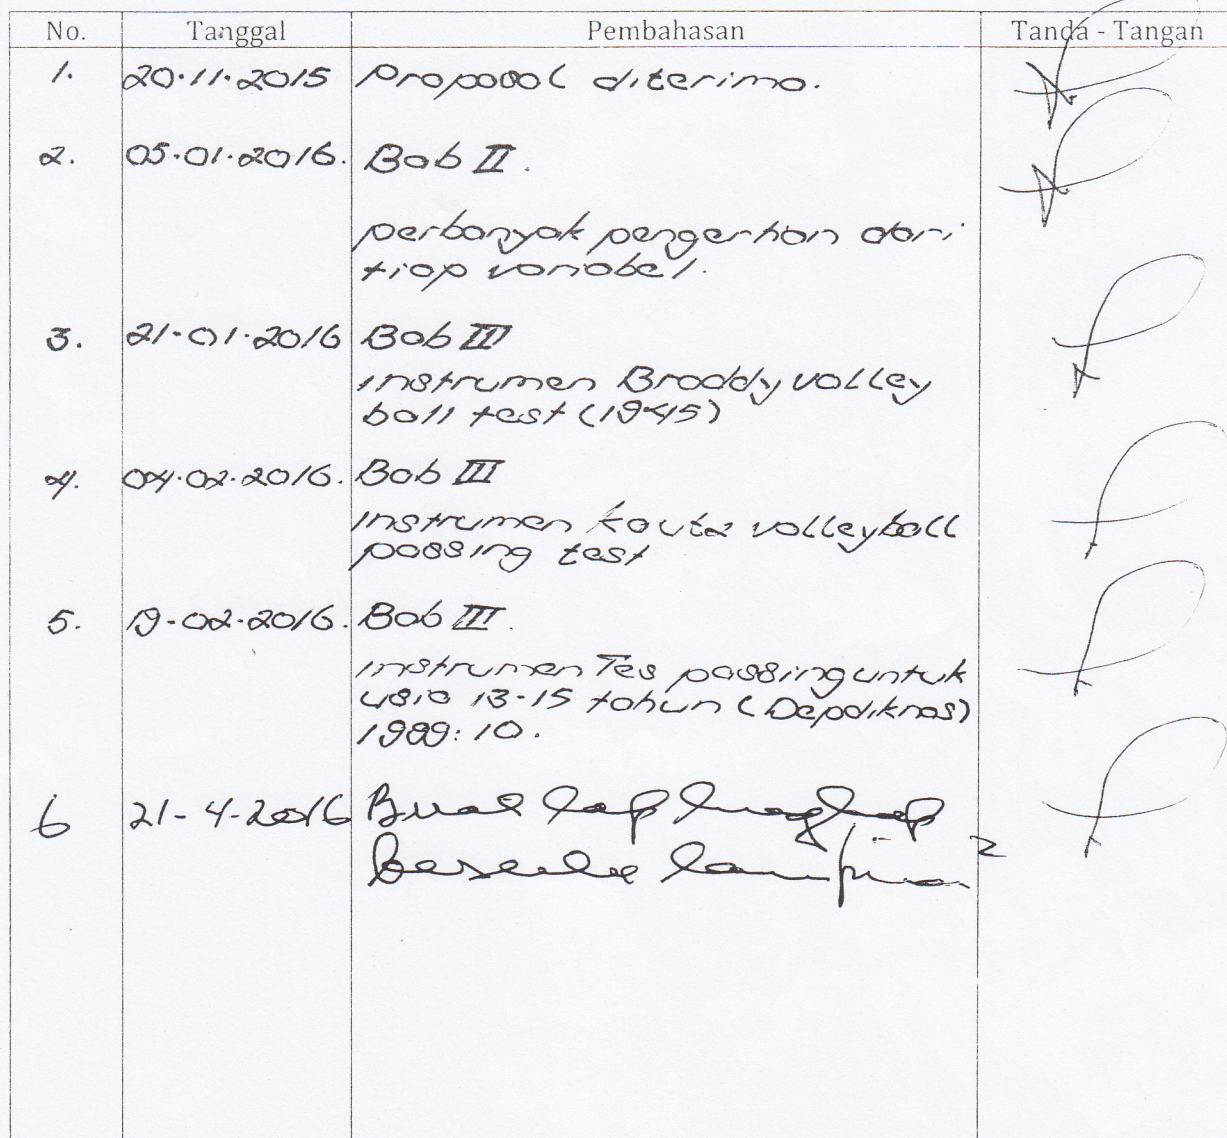 No. Tanggal Pembahasan Tanda - Tangan
1. 20.11.2015 Proposal diterima.
2. 05.01.2016. Bab II.
perbanyak pengertian dari
tiap variabel.
3. 21-01-2016 Bab III
instrumen Braddy volley
ball test (1945)
4. 04.02.2016. Bab III
instrumen Kautz volleyball
passing test
5. 19-02-2016. Bab III.
instrumen Tes passing untuk
usia 13-15 tahun (Depdiknas)
1989: 10.
6 21-4-2016 Buat lap lengkap
beserta lampiran